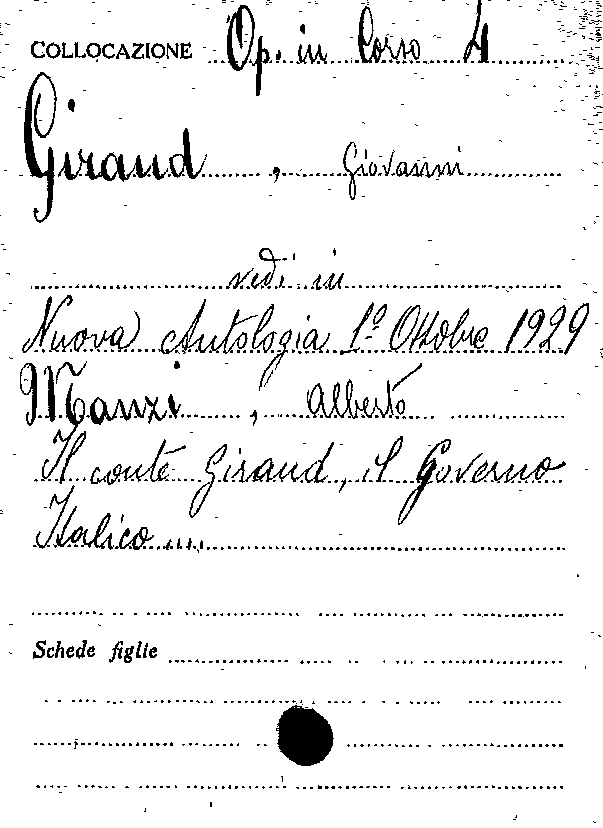 COLLOCAZIONE Op. in Corso 4
Giraud, Giovanni
vedi in
Nuova Antologia 1º Ottobre 1929
Manzi, Alberto
Il conte Giraud, il Governo
Italico ....
Schede figlie